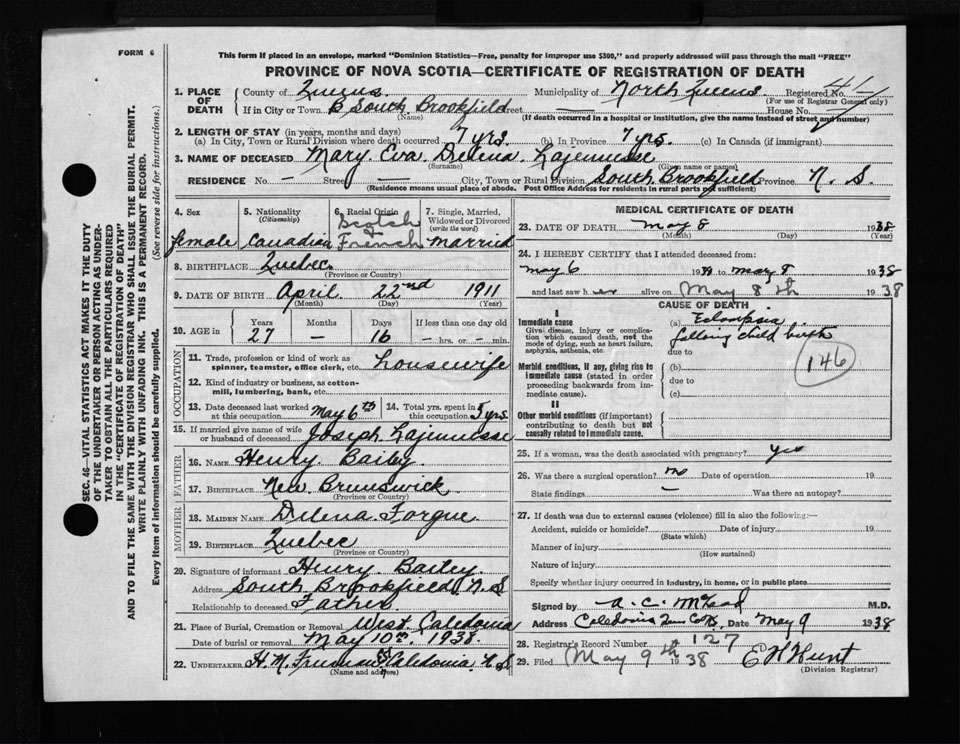 FORM 6
This form if placed in an envelope, marked "Dominion Statistics—Free, penalty for improper use $300," and properly addressed will pass through the mail "FREE"
PROVINCE OF NOVA SCOTIA—CERTIFICATE OF REGISTRATION OF DEATH
1. PLACE OF DEATH
County of Queens Municipality of North Queens Registered No.
(For use of Registrar General only)
If in City or Town South Brookfield Street — House No.
(Name) (If death occurred in a hospital or institution, give the name instead of street and number)
2. LENGTH OF STAY (in years, months and days)
(a) In City, Town or Rural Division where death occurred 7 yrs. (b) In Province 7 yrs. (c) In Canada (if immigrant)
3. NAME OF DECEASED Mary Eva Delena Lajeunesse
(Surname) (Given name or names)
RESIDENCE No. — Street — City, Town or Rural Division South Brookfield Province N. S.
(Residence means usual place of abode. Post Office Address for residents in rural parts not sufficient)
4. Sex female
5. Nationality (Citizenship) Canadian
6. Racial Origin Scotch & French
7. Single, Married, Widowed or Divorced (write the word) Married
8. BIRTHPLACE Quebec
(Province or Country)
9. DATE OF BIRTH April 22nd 1911
(Month) (Day) (Year)
10. AGE in Years 27 Months — Days 16 If less than one day old — hrs. or — min.
OCCUPATION
11. Trade, profession or kind of work as spinner, teamster, office clerk, etc. housewife
12. Kind of industry or business, as cotton-mill, lumbering, bank, etc.
13. Date deceased last worked at this occupation May 6th
14. Total yrs. spent in this occupation 5 yrs
15. If married give name of wife or husband of deceased Joseph Lajeunesse
FATHER
16. NAME Henry Bailey
17. BIRTHPLACE New Brunswick
(Province or Country)
MOTHER
18. MAIDEN NAME Delena Forgue
19. BIRTHPLACE Quebec
(Province or Country)
20. Signature of informant Henry Bailey
Address South Brookfield N. S
Relationship to deceased Father
21. Place of Burial, Cremation or Removal West Caledonia
Date of burial or removal May 10th 1938.
22. UNDERTAKER H. M. Freeman Caledonia N. S
(Name and address)
MEDICAL CERTIFICATE OF DEATH
23. DATE OF DEATH May 8 1938
(Month) (Day) (Year)
24. I HEREBY CERTIFY that I attended deceased from
May 6 1938 to May 8 1938
and last saw her alive on May 8th 1938
CAUSE OF DEATH
I
Immediate cause
Give disease, injury or complication which caused death, not the mode of dying, such as heart failure, asphyxia, asthenia, etc.
(a) Eclampsia
following child birth
due to
146
Morbid conditions, if any, giving rise to immediate cause (stated in order proceeding backwards from immediate cause).
(b)
due to
(c)
II
Other morbid conditions (if important) contributing to death but not causally related to immediate cause.
25. If a woman, was the death associated with pregnancy? yes
26. Was there a surgical operation? no Date of operation 19
State findings — Was there an autopsy?
27. If death was due to external causes (violence) fill in also the following:—
Accident, suicide or homicide? Date of injury 19
(State which)
Manner of injury
(How sustained)
Nature of injury
Specify whether injury occurred in industry, in home, or in public place
Signed by A. C. McLeod M.D.
Address Caledonia Date May 9 1938
28. Registrar's Record Number # 127
29. Filed May 9th 1938 E D H Hunt
(Division Registrar)
SEC. 46—VITAL STATISTICS ACT MAKES IT THE DUTY
OF THE UNDERTAKER OR PERSON ACTING AS UNDER-
TAKER TO OBTAIN ALL THE PARTICULARS REQUIRED
IN THE "CERTIFICATE OF REGISTRATION OF DEATH"
AND TO FILE THE SAME WITH THE DIVISION REGISTRAR WHO SHALL ISSUE THE BURIAL PERMIT.
WRITE PLAINLY WITH UNFADING INK. THIS IS A PERMANENT RECORD.
Every item of information should be carefully supplied. (See reverse side for instructions.)